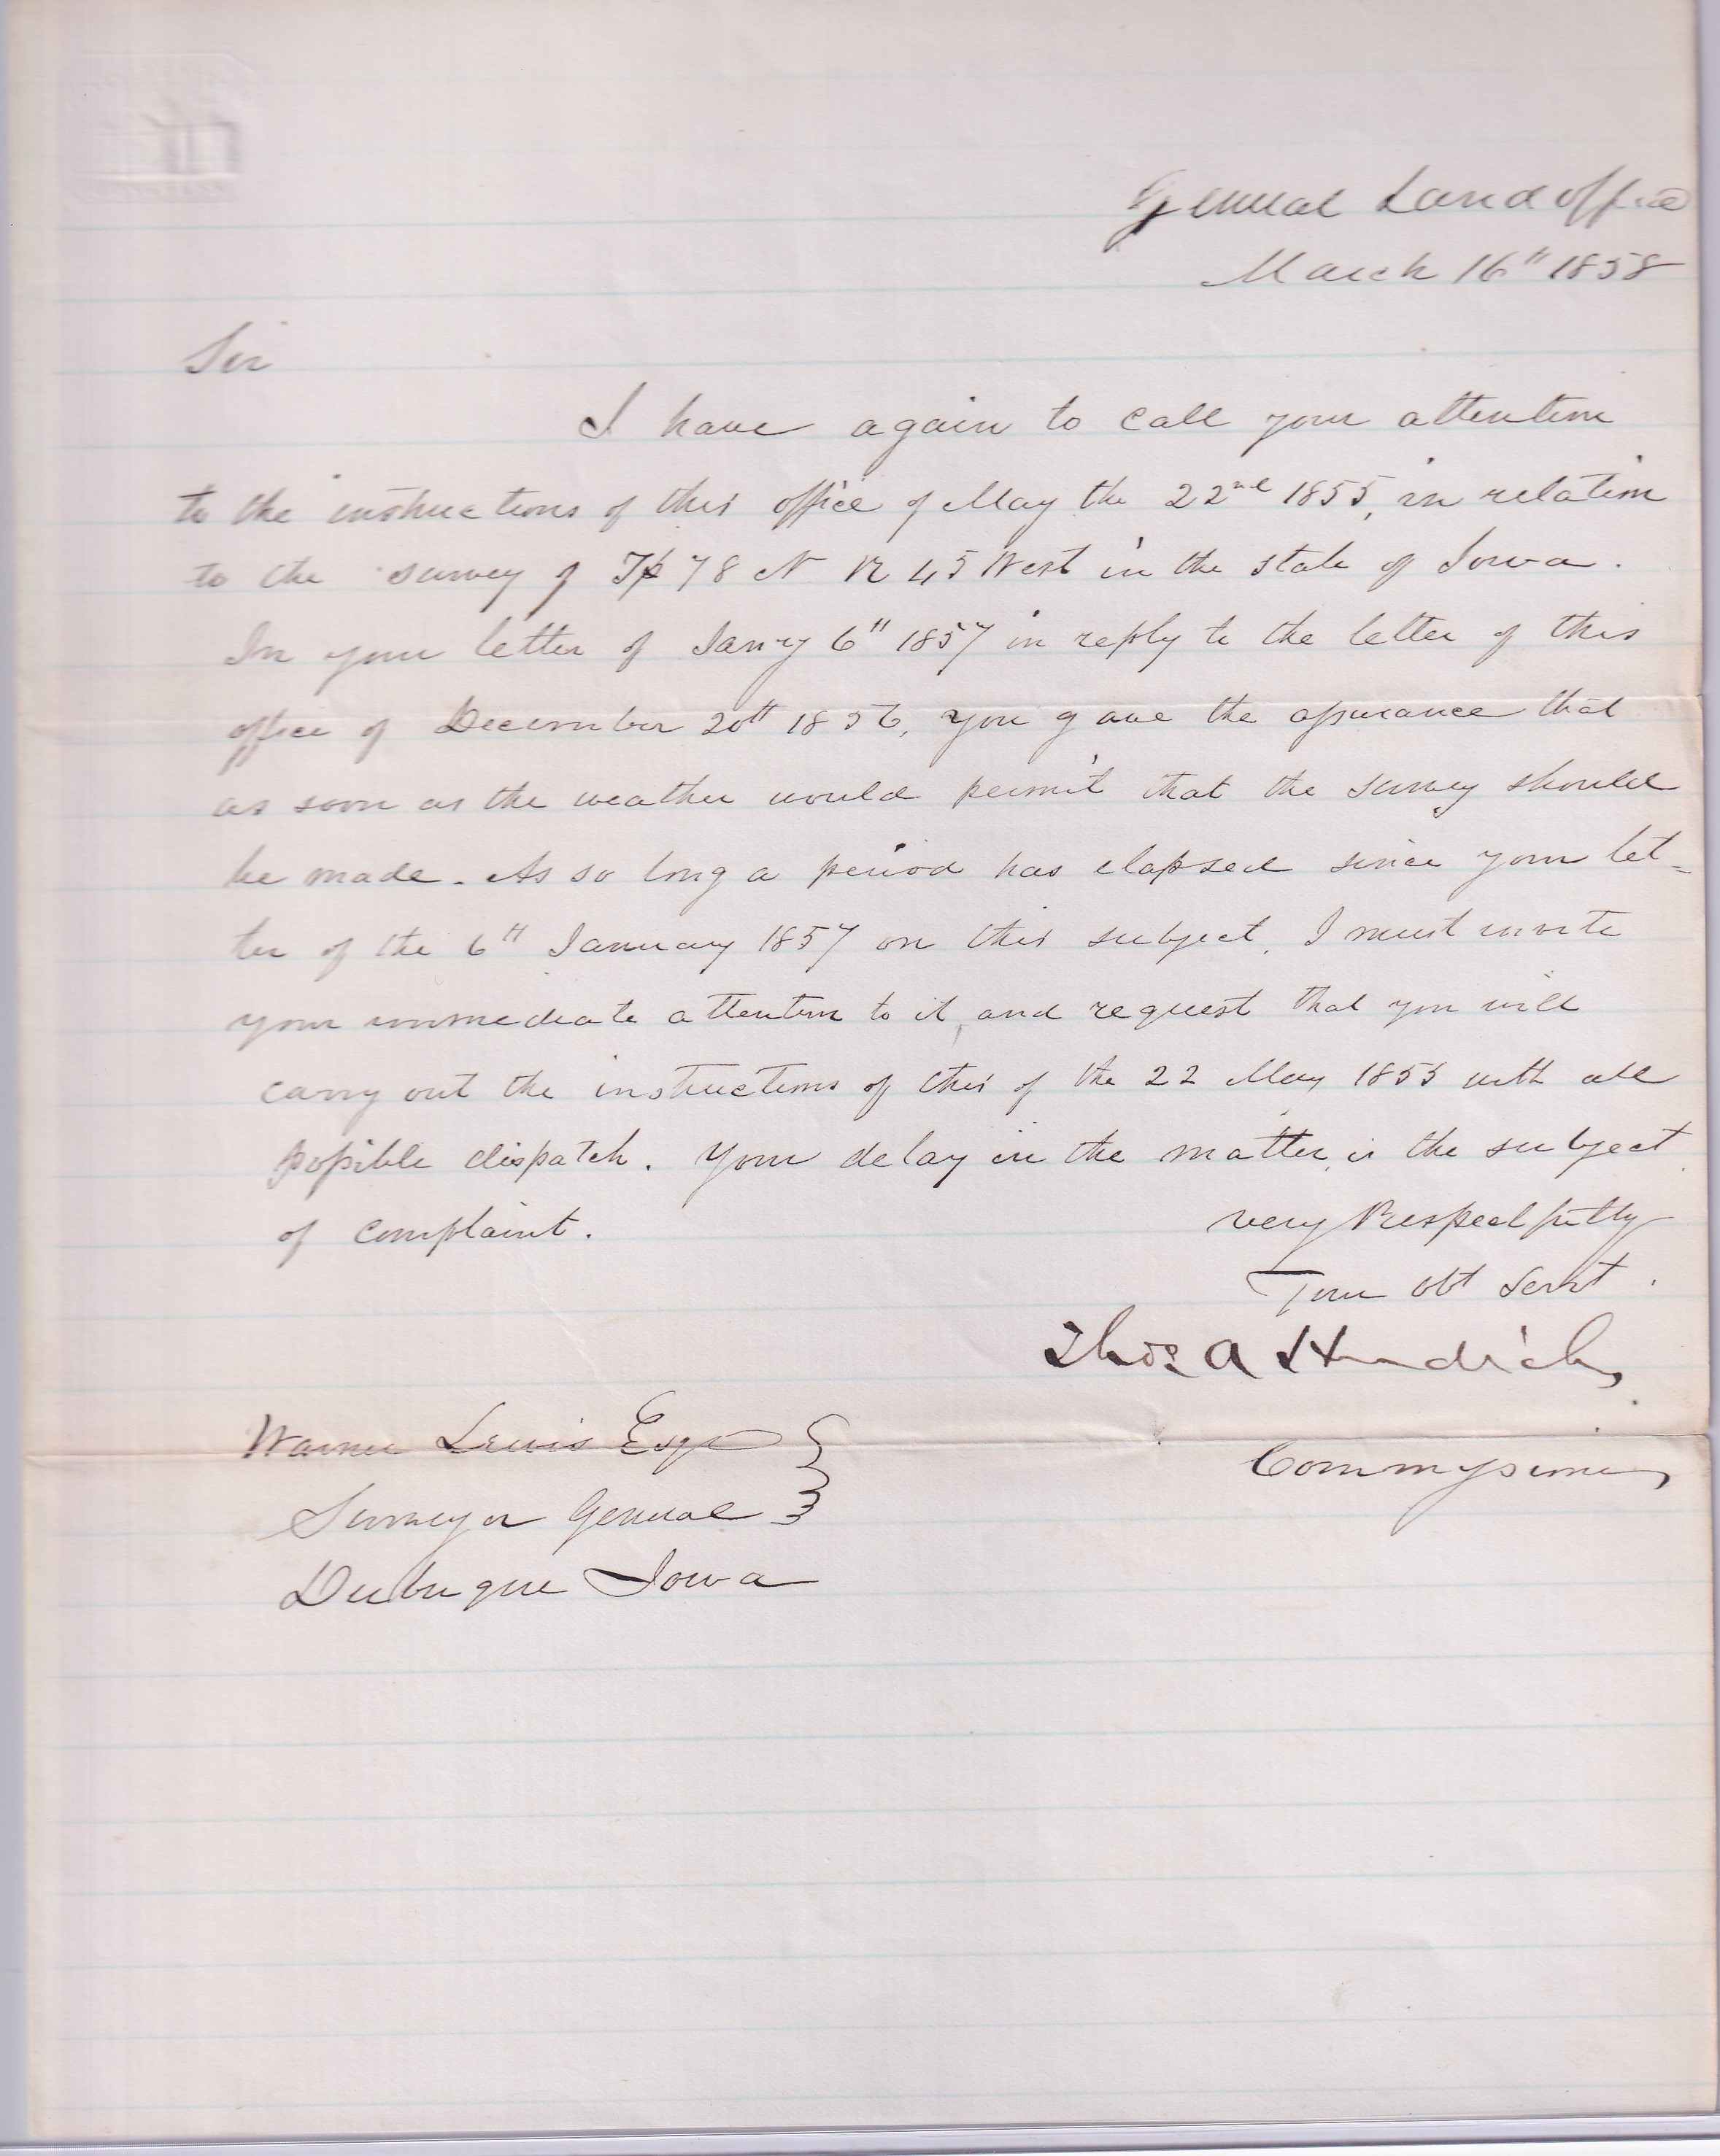 General Land Office
March 16" 1858
Sir
I have again to call your attention
to the instructions of this office of May the 22nd 1855, in relation
to the survey of Tp 78 N R 45 West in the state of Iowa.
In your letter of Jan'y 6" 1857 in reply to the letter of this
office of December 20th 1856, you gave the assurance that
as soon as the weather would permit that the survey should
be made. As so long a period has elapsed since your let=
ter of the 6th January 1857 on this subject, I must invite
your immediate attention to it, and request that you will
carry out the instructions of this of the 22 May 1855 with all
possible dispatch. Your delay in the matter, is the subject
of complaint.
very Respectfully
Your Obt Servt.
Thos. A Hendricks
Commissioner
Warner Lewis Esqr
Surveyor General
Dubuque Iowa